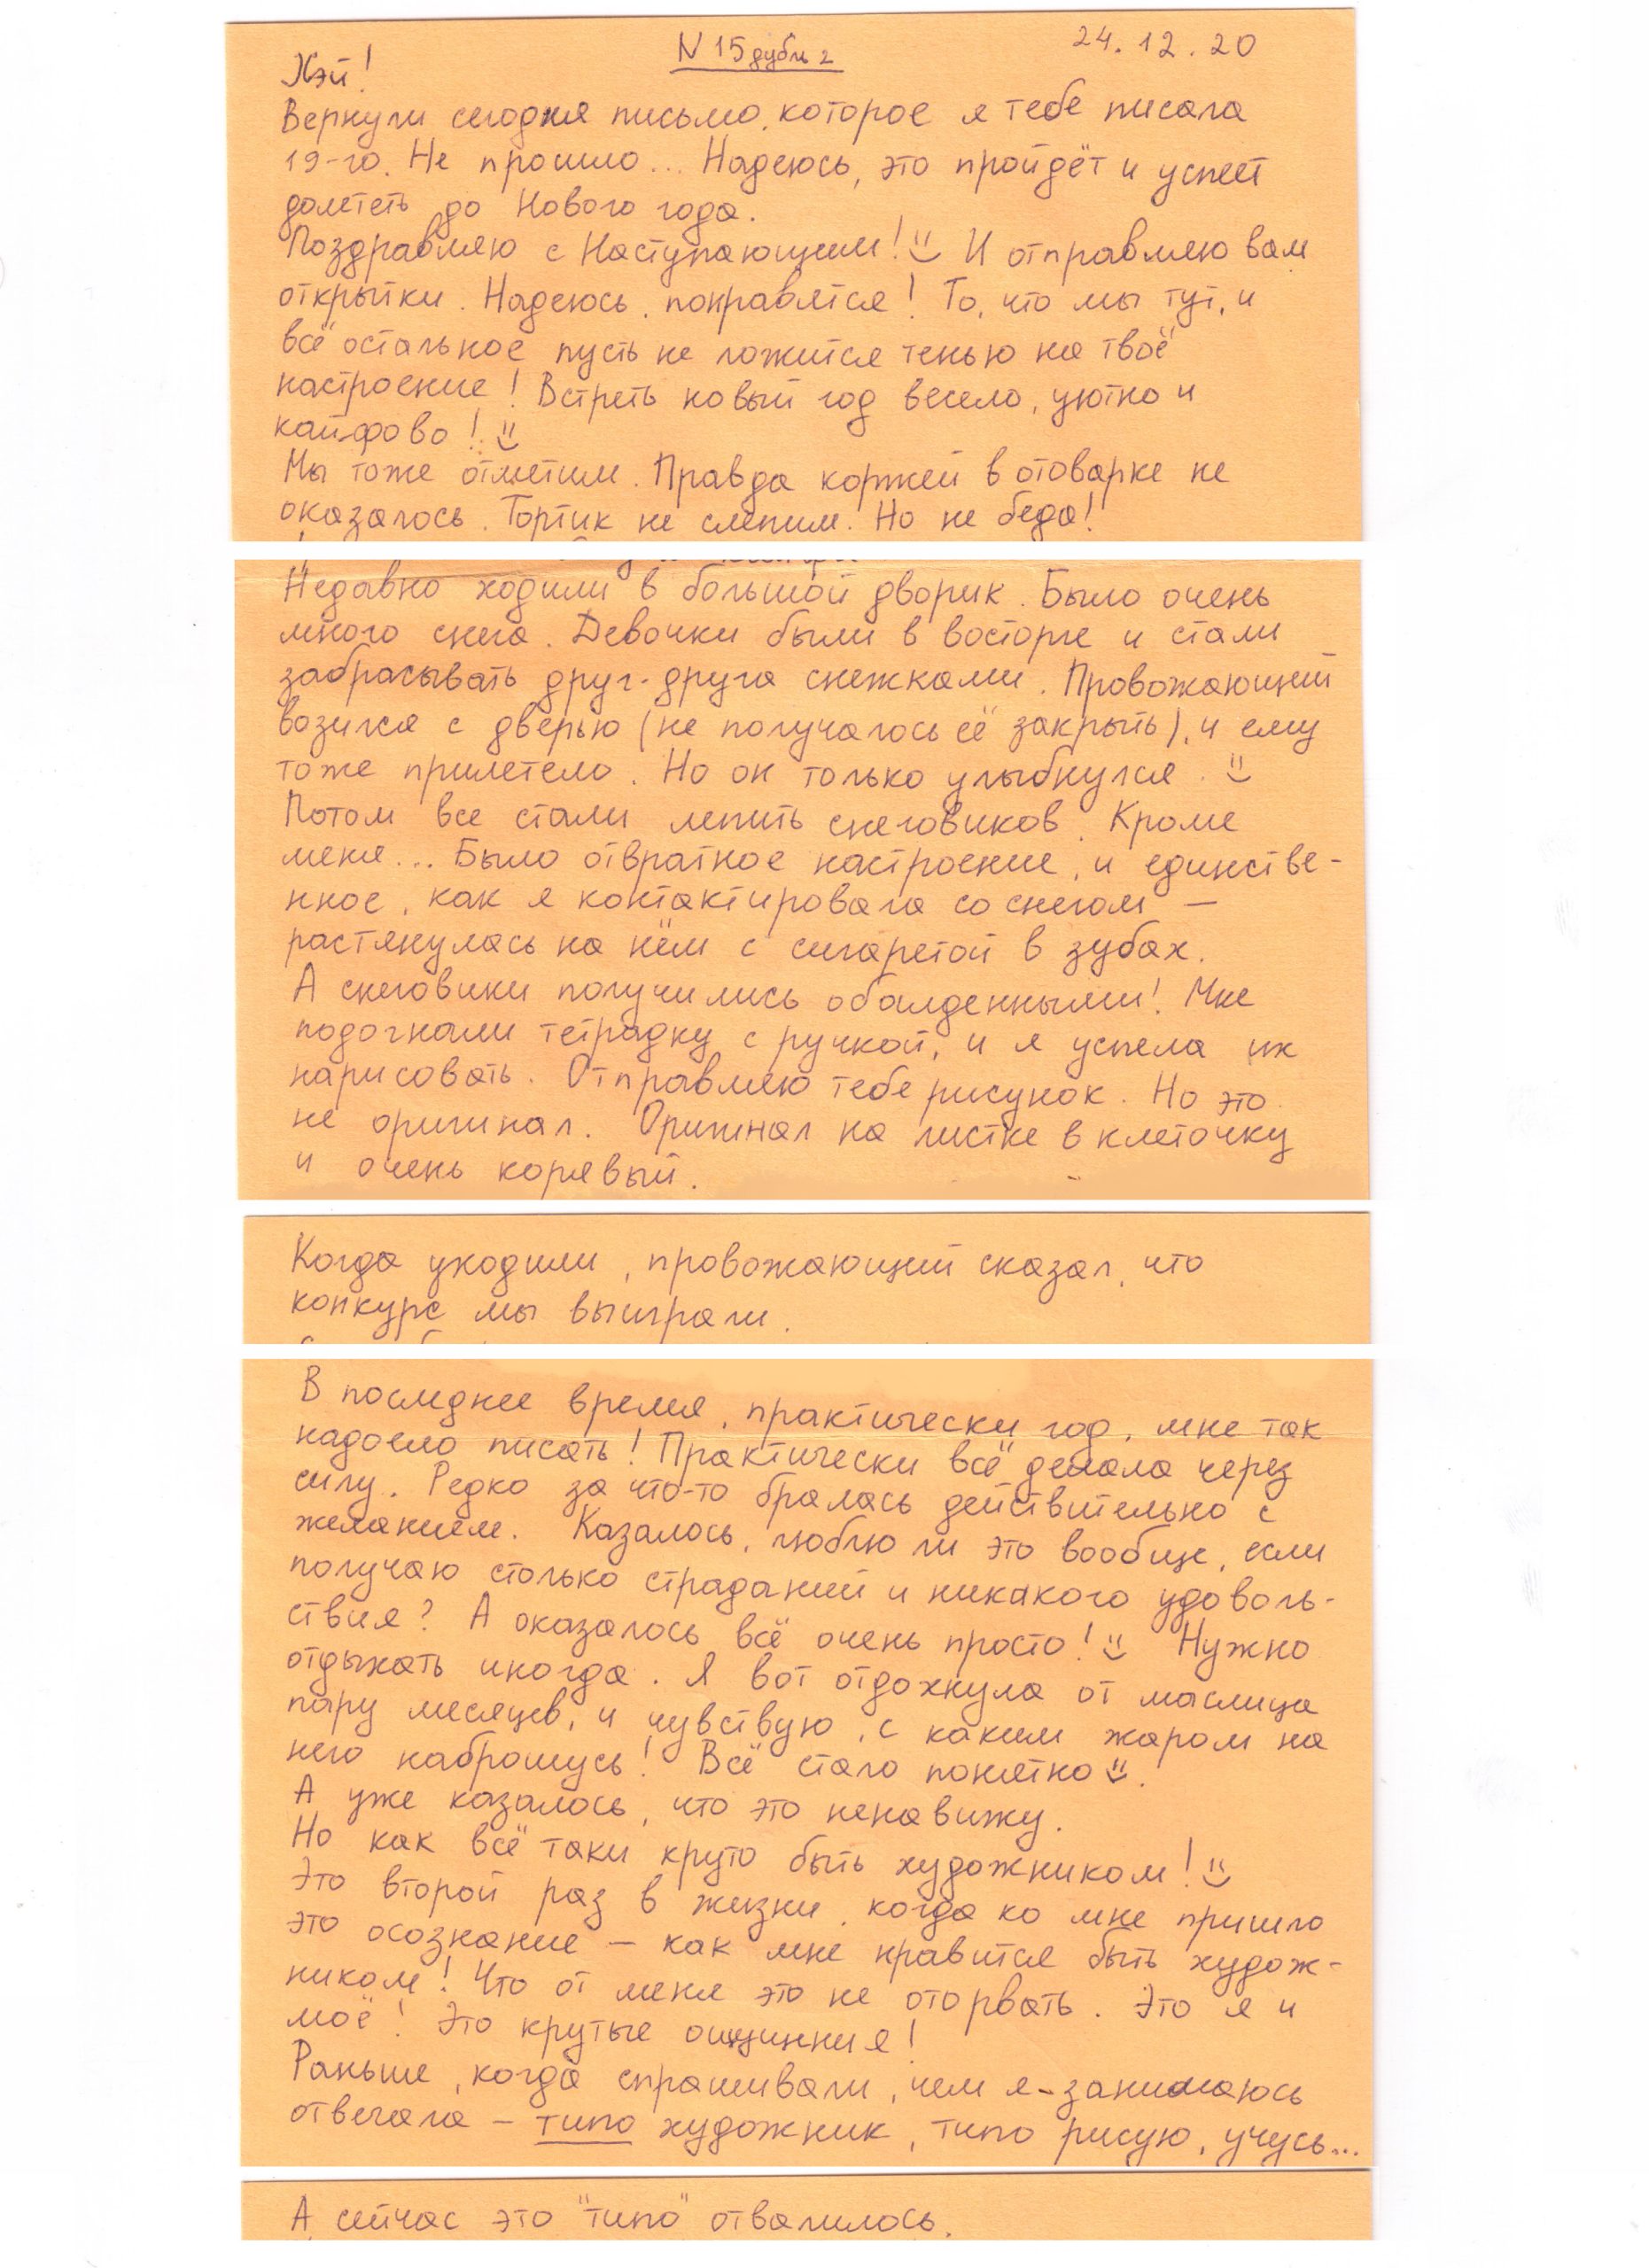 Хэй!
N 15 дубль 2
24.12.20
Вернули сегодня письмо, которое я тебе писала
19-го. Не прошло... Надеюсь, это пройдёт и успеет
долететь до Нового года.
Поздравляю с Наступающим! :) И отправляю вам
открытки. Надеюсь, понравятся! То, что мы тут, и
всё остальное пусть не ложится тенью на твоё
настроение! Встреть новый год весело, уютно и
кайфово! :)
Мы тоже отметим. Правда коржей в отоварке не
оказалось. Тортик не слепим. Но не беда!
Недавно ходили в большой дворик. Было очень
много снега. Девочки были в восторге и стали
забрасывать друг-друга снежками. Провожающий
возился с дверью (не получалось её закрыть), и ему
тоже прилетело. Но он только улыбнулся. :)
Потом все стали лепить снеговиков. Кроме
меня... Было отвратное настроение, и единстве-
нное, как я контактировала со снегом —
растянулась на нём с сигаретой в зубах.
А снеговики получились обалденными! Мне
подогнали тетрадку с ручкой, и я успела их
нарисовать. Отправляю тебе рисунок. Но это
не оригинал. Оригинал на листке в клеточку
и очень корявый.
Когда уходили, провожающий сказал, что
конкурс мы выиграли.
В последнее время, практически год, мне так
надоело писать! Практически всё делала через
силу. Редко за что-то бралась действительно с
желанием. Казалось, люблю ли это вообще, если
получаю столько страданий и никакого удоволь-
ствия? А оказалось всё очень просто! :) Нужно
отдыхать иногда. Я вот отдохнула от маслица
пару месяцев, и чувствую, с каким жаром на
него наброшусь! Всё стало понятно :).
А уже казалось, что это ненавижу.
Но как всё таки круто быть художником! :)
Это второй раз в жизни, когда ко мне пришло
это осознание — как мне нравится быть худож-
ником! Что от меня это не оторвать. Это я и
моё! Это крутые ощущения!
Раньше, когда спрашивали, чем я занимаюсь
отвечала – типо художник, типо рисую, учусь...
А сейчас это "типо" отвалилось.